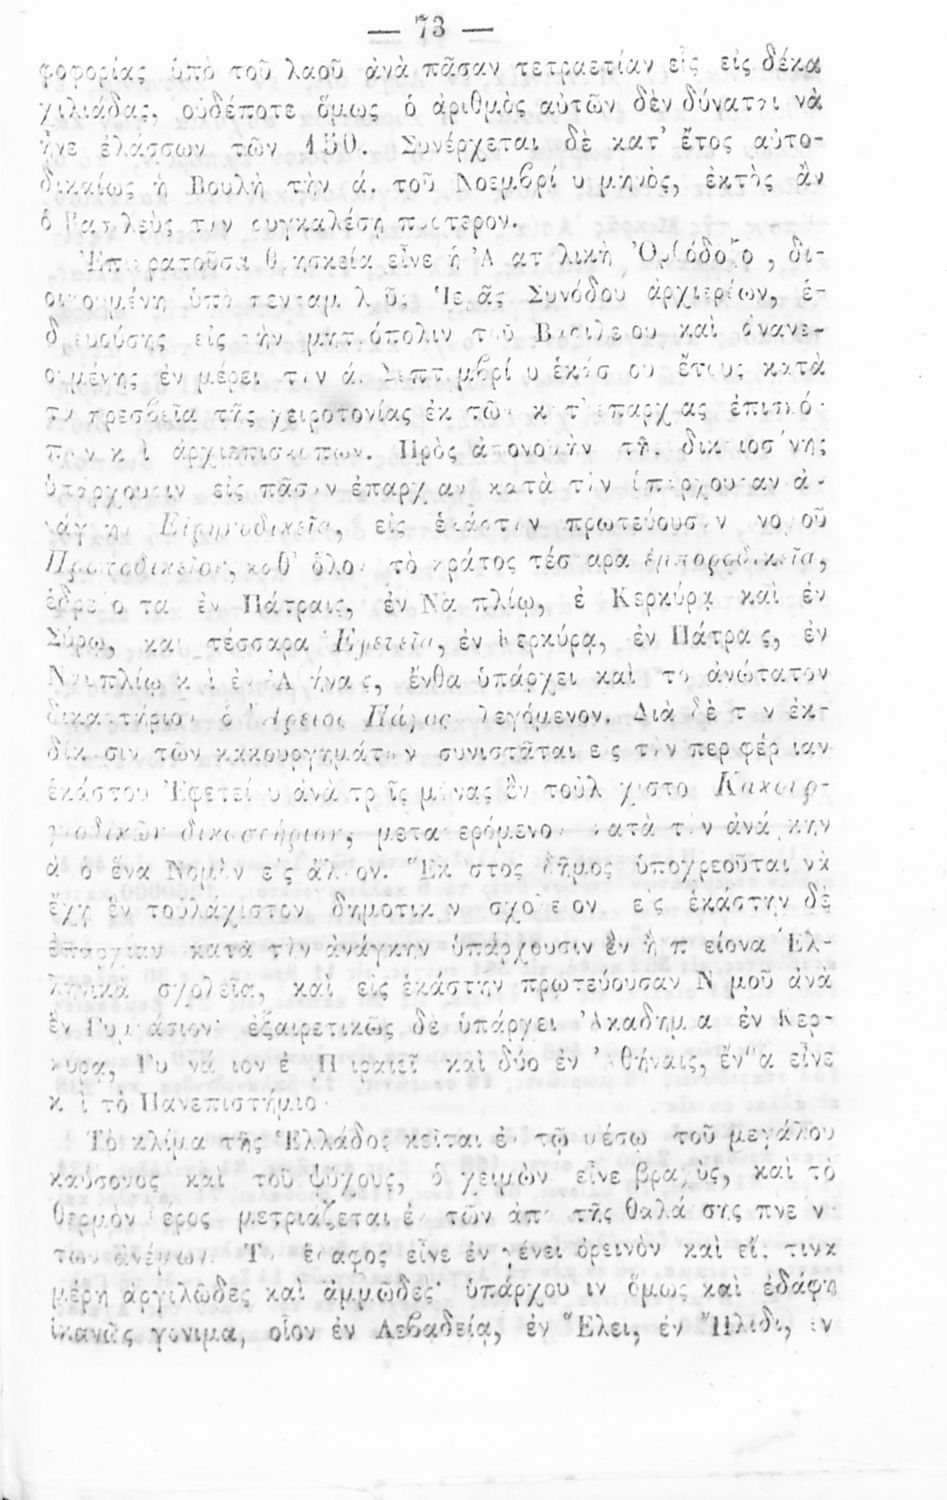 — 73 —
φοφορίας ὑπὸ τοῦ λαοῦ ἀνὰ πᾶσαν τετραετίαν εἷς εἰς δέκα
χιλιάδας, οὐδέποτε ὅμως ὁ ἀριθμὸς αὐτῶν δὲν δύναται νὰ
ἦνε ἐλάσσων τῶν 150. Συνέρχεται δὲ κατ' ἔτος αὐτο-
δικαίως ἡ Βουλὴ τὴν ά. τοῦ Νοεμβρίου μηνὸς, ἐκτὸς ἂν
ὁ Βασιλεὺς τὴν συγκαλέσῃ πρότερον.
Ἐπικρατοῦσα θρησκεία εἶνε ἡ Ἀνατολικὴ Ὀρθόδοξος, δι-
οικουμένη ὑπὸ πενταμελοῦς Ἱερᾶς Συνόδου ἀρχιερέων, ἑ-
δρευούσης εἰς τὴν μητρόπολιν τοῦ Βασιλείου καὶ ἀνανε-
ουμένης ἐν μέρει τὴν ά. Σεπτεμβρίου ἑκάστου ἔτους κατὰ
τὰ πρεσβεῖα τῆς χειροτονίας ἐκ τῶν κατ' ἐπαρχίας ἐπισκό-
πων καὶ ἀρχιεπισκόπων. Πρὸς ἀπονομὴν τῆς δικαιοσύνης
ὑπάρχουσιν εἰς πᾶσαν ἐπαρχίαν κατὰ τὴν ὑπάρχουσαν ἀ-
νάγκην Εἰρηνοδικεῖα, εἰς ἑκάστην πρωτεύουσαν νομοῦ
Πρωτοδικεῖον, καθ' ὅλον τὸ κράτος τέσσαρα ἐμποροδικεῖα,
ἑδρεύοντα ἐν Πάτραις, ἐν Ναυπλίῳ, ἐν Κερκύρᾳ καὶ ἐν
Σύρῳ, καὶ τέσσαρα Ἐφετεῖα, ἐν Κερκύρᾳ, ἐν Πάτραις, ἐν
Ναυπλίῳ καὶ ἐν Ἀθήναις, ἔνθα ὑπάρχει καὶ τὸ ἀνώτατον
δικαστήριον ὁ Ἄρειος Πάγος λεγόμενον. Διὰ δὲ τὴν ἐκ-
δίκασιν τῶν κακουργημάτων συνιστᾶται εἰς τὴν περιφέρειαν
ἑκάστου Ἐφετείου ἀνὰ τρεῖς μῆνας ἓν τοὐλάχιστον Κακουρ-
γιοδικῶν δικαστήριον, μεταφερόμενον κατὰ τὴν ἀνάγκην
ἀπὸ ἕνα Νομὸν εἰς ἄλλον. Ἕκαστος δῆμος ὑποχρεοῦται νὰ
ἔχῃ ἓν τοὐλάχιστον δημοτικὸν σχολεῖον, εἰς ἑκάστην δὲ
ἐπαρχίαν κατὰ τὴν ἀνάγκην ὑπάρχουσιν ἓν ἢ πλείονα Ἑλ-
ληνικὰ σχολεῖα, καὶ εἰς ἑκάστην πρωτεύουσαν Νομοῦ ἀνὰ
ἓν Γυμνάσιον· ἐξαιρετικῶς δὲ ὑπάρχει Ἀκαδημία ἐν Κερ-
κύρᾳ, Γυμνάσιον ἐν Πειραιεῖ καὶ δύο ἐν Ἀθήναις, ἔνθα εἶνε
καὶ τὸ Πανεπιστήμιον·
Τὸ κλῖμα τῆς Ἑλλάδος κεῖται ἐν τῷ μέσῳ τοῦ μεγάλου
καύσονος καὶ τοῦ ψύχους, ὁ χειμὼν εἶνε βραχὺς, καὶ τὸ
θερμὸν θέρος μετριάζεται ἐκ τῶν ἀπὸ τῆς θαλάσσης πνεόν-
των ἀνέμων. Τὸ ἔδαφος εἶνε ἐν γένει ὀρεινὸν καὶ εἴς τινα
μέρη ἀργιλῶδες καὶ ἀμμῶδες· ὑπάρχουσιν ὅμως καὶ ἐδάφη
ἱκανῶς γόνιμα, οἷον ἐν Λεβαδείᾳ, ἐν Ἕλει, ἐν Ἤλιδι, ἐν